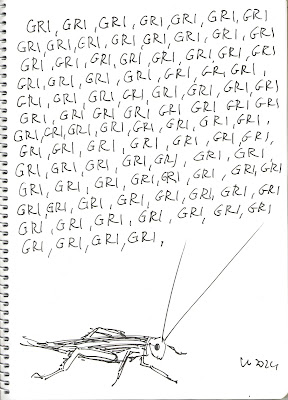 GRI, GRI, GRI, GRI, GRI, GRI, GRI
GRI, GRI, GRI, GRI, GRI, GRI, GRI, GRI
GRI, GRI, GRI, GRI, GRI, GRI, GRI
GRI, GRI, GRI, GRI, GRI, GRI, GRI,
GRI, GRI, GRI, GRI, GRI, GRI, GRI
GRI, GRI GRI GRI GRI GRI GRI
GRI, GRI, GRI, GRI, GRI, GRI, GRI, GRI,
GRI, GRI, GRI, GRI, GRI, GRI, GRI,
GRI, GRI, GRI, GRI, GRI, GRI, GRI,
GRI, GRI, GRI, GRI, GRI, GRI, GRI, GRI
GRI, GRI, GRI, GRI, GRI, GRI, GRI, GRI
GRI, GRI, GRI, GRI, GRI, GRI, GRI
GRI, GRI, GRI, GRI,
2024